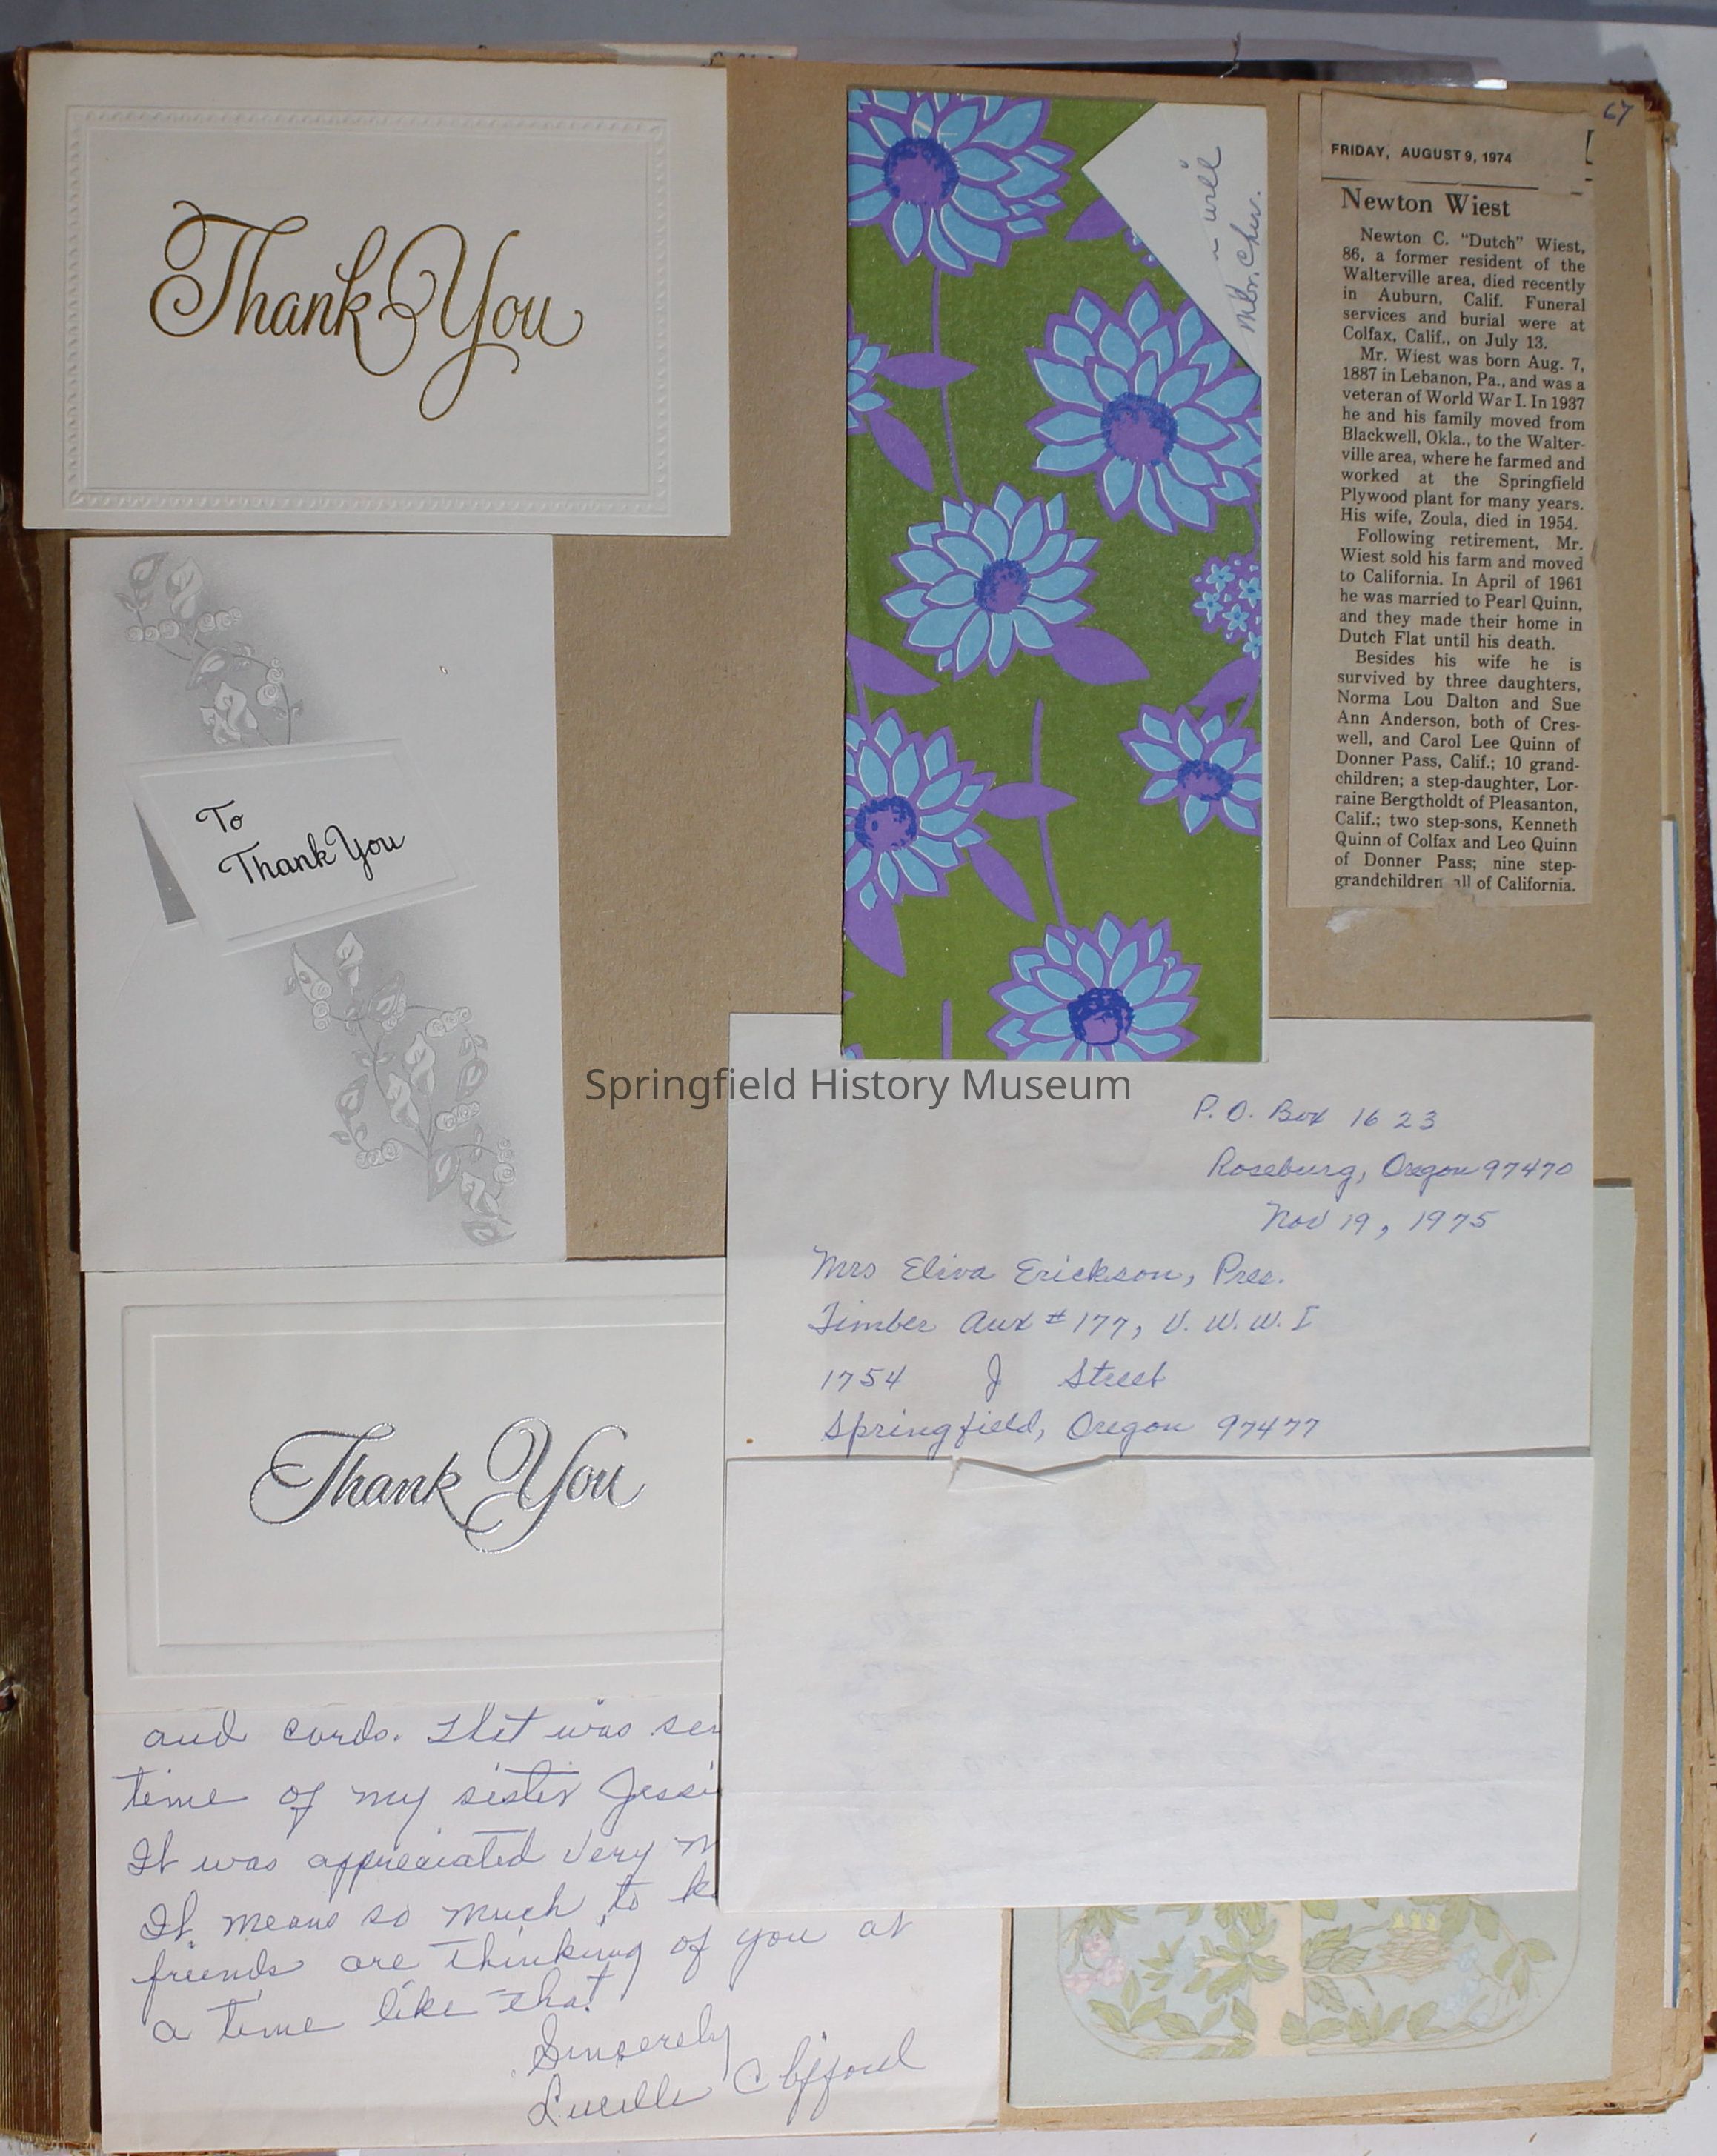 67
Thank You
will
FRIDAY, AUGUST 9, 1974
Newton Wiest
Newton C. "Dutch" Wiest,
86, a former resident of the
Walterville area, died recently
in Auburn, Calif. Funeral
services and burial were at
Colfax, Calif., on July 13.
Mr. Wiest was born Aug. 7,
1887 in Lebanon, Pa., and was a
veteran of World War I. In 1937
he and his family moved from
Blackwell, Okla., to the Walter-
ville area, where he farmed and
worked at the Springfield
Plywood plant for many years.
His wife, Zoula, died in 1954.
Following retirement, Mr.
Wiest sold his farm and moved
to California. In April of 1961
he was married to Pearl Quinn,
and they made their home in
Dutch Flat until his death.
Besides his wife he is
survived by three daughters,
Norma Lou Dalton and Sue
Ann Anderson, both of Cres-
well, and Carol Lee Quinn of
Donner Pass, Calif.; 10 grand-
children; a step-daughter, Lor-
raine Bergtholdt of Pleasanton,
Calif.; two step-sons, Kenneth
Quinn of Colfax and Leo Quinn
of Donner Pass; nine step-
grandchildren all of California.
To
Thank You
Springfield History Museum
P. O. Box 1623
Roseburg, Oregon 97470
Nov 19, 1975
Mrs Eliva Erickson, Pres.
Timber Aux #177, V. W. W. I
1754 J Street
Springfield, Oregon 97477
Thank You
and cards. That was
time of my sister
It was appreciated very
It means so much to
friends are thinking of you at
a time like that
Sincerely
Lucille Clifford